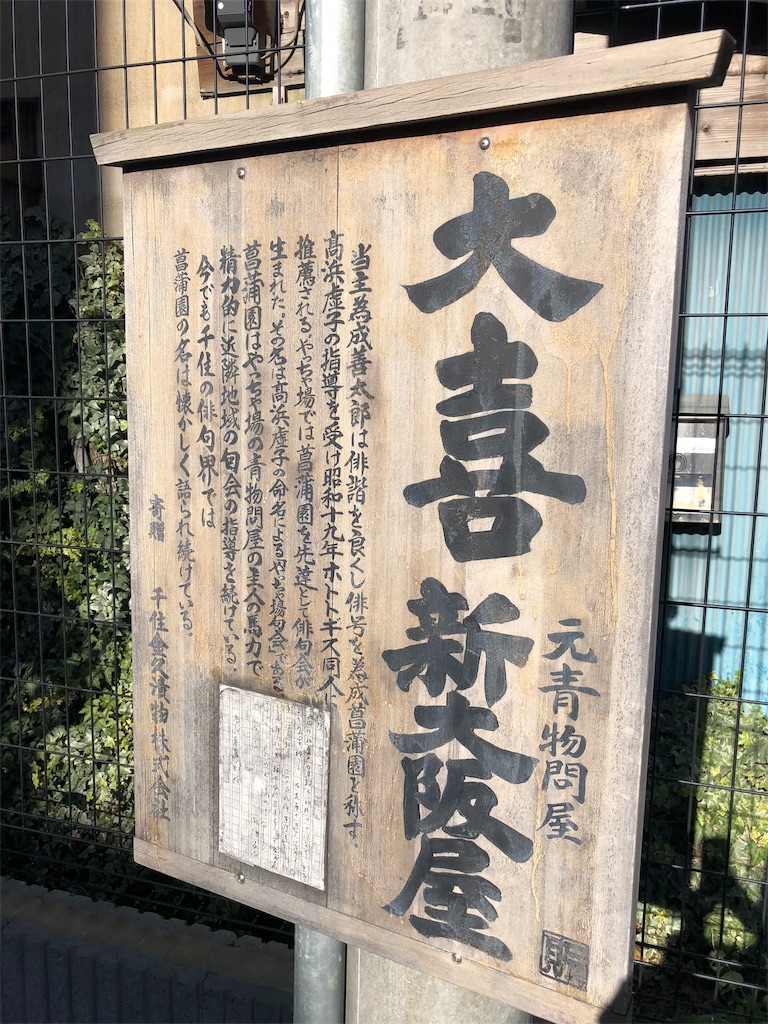 元青物問屋
大喜 新大阪屋
当主為成善太郎は俳諧を良くし俳号を為成菖蒲園と称す。
高浜虚子の指導を受け昭和十九年ホトトギス同人に
推薦される。やっちゃ場では菖蒲園を先達として俳句会が
生まれた。その名は高浜虚子の命名によるやっちゃ場句会である
菖蒲園はやっちゃ場の青物問屋の主人の馬力で
精力的に近隣地域の句会の指導を続けている。
今でも千住の俳句界では
菖蒲園の名は懐かしく語られ続けている。
寄贈 千住金久漬物株式会社